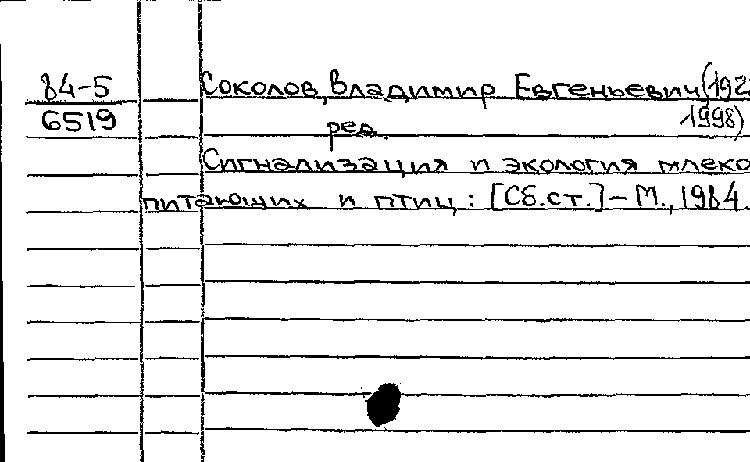 84-5
6519
Соколов, Владимир Евгеньевич (192
1998)
ред.
Сигнализация и экология млеко
питающих и птиц : [Сб.ст.] – М., 1984.